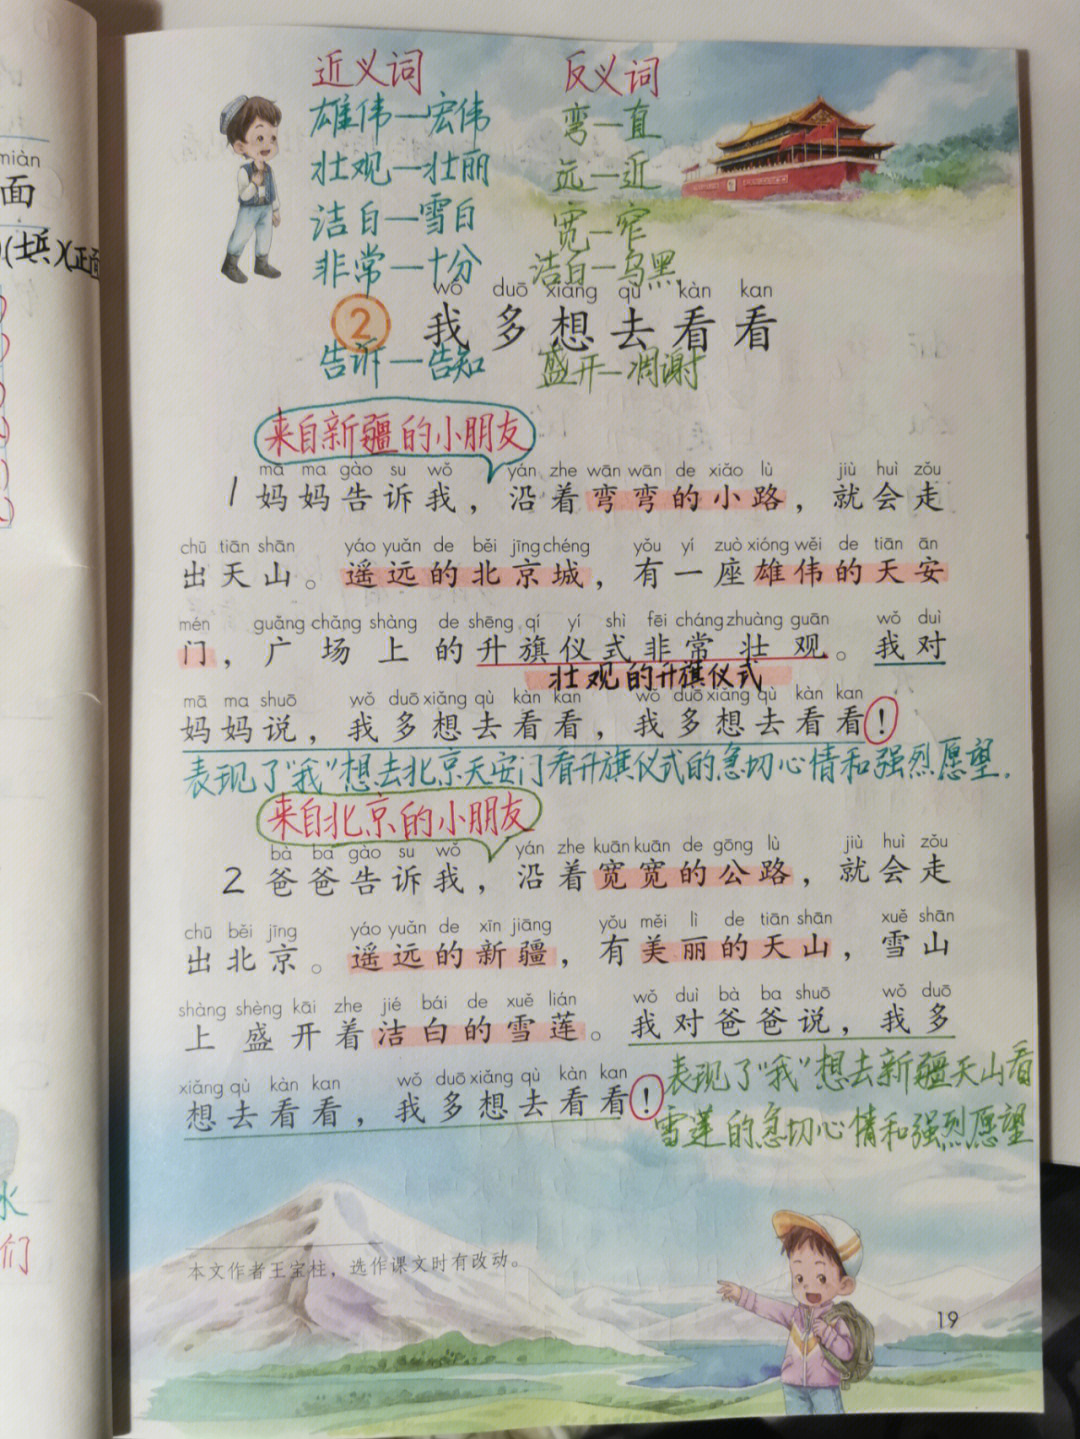 近义词 反义词
雄伟—宏伟 弯—直
壮观—壮丽 远—近
洁白—雪白 宽—窄
非常—十分 洁白—乌黑
wǒ duō xiǎng qù kàn kan
2 我多想去看看
告诉—告知 盛开—凋谢
来自新疆的小朋友
mā ma gào su wǒ yán zhe wān wān de xiǎo lù jiù huì zǒu
1 妈妈告诉我，沿着弯弯的小路，就会走
chū tiān shān yáo yuǎn de běi jīng chéng yǒu yí zuò xióng wěi de tiān ān
出天山。遥远的北京城，有一座雄伟的天安
mén guǎng chǎng shàng de shēng qí yí shì fēi cháng zhuàng guān wǒ duì
门，广场上的升旗仪式非常壮观。我对
壮观的升旗仪式
mā ma shuō wǒ duō xiǎng qù kàn kan wǒ duō xiǎng qù kàn kan
妈妈说，我多想去看看，我多想去看看！
表现了“我”想去北京天安门看升旗仪式的急切心情和强烈愿望.
来自北京的小朋友
bà ba gào su wǒ yán zhe kuān kuān de gōng lù jiù huì zǒu
2 爸爸告诉我，沿着宽宽的公路，就会走
chū běi jīng yáo yuǎn de xīn jiāng yǒu měi lì de tiān shān xuě shān
出北京。遥远的新疆，有美丽的天山，雪山
shàng shèng kāi zhe jié bái de xuě lián wǒ duì bà ba shuō wǒ duō
上盛开着洁白的雪莲。我对爸爸说，我多
xiǎng qù kàn kan wǒ duō xiǎng qù kàn kan
想去看看，我多想去看看！
表现了“我”想去新疆天山看
雪莲的急切心情和强烈愿望
本文作者王宝柱，选作课文时有改动。
19
miàn
面
(士兵)(正面
水
们